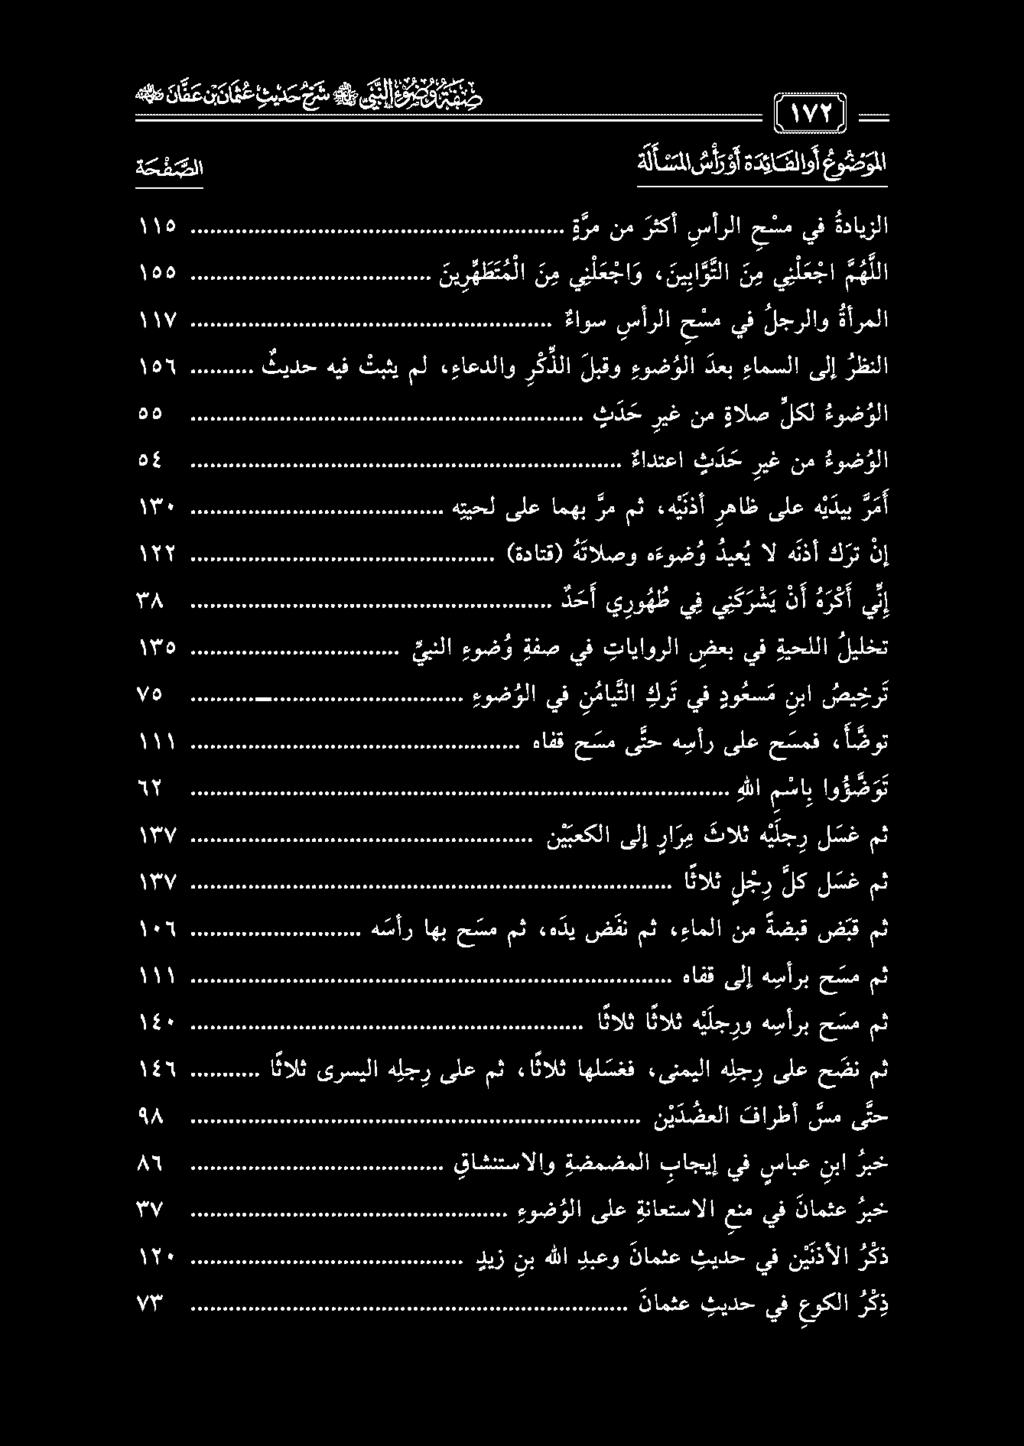 ١٧٢ صِفَةُ وُضُوءِ النَّبِيِّ ﷺ شَرْحُ حَدِيثِ عُثْمَانَ بْنِ عَفَّانَ
المَوْضُوعُ أَوِ الفَائِدَة أَوْ رَأْسُ المَسْأَلَة الصَّفْحَة
الزيادةُ في مسْحِ الرأسِ أكثرَ من مرَّةٍ ... ١١٥
اللَّهُمَّ اجْعَلْنِي مِنَ التَّوَّابِينَ، وَاجْعَلْنِي مِنَ الْمُتَطَهِّرِينَ ... ١٥٥
المرأةُ والرجلُ في مسْحِ الرأسِ سواءٌ ... ١١٧
النظرُ إلى السماءِ بعدَ الوُضوءِ وقبلَ الذِّكْرِ والدعاءِ، لم يثبتْ فيه حديثٌ ... ١٥٦
الوُضوءُ لكلِّ صلاةٍ من غيرِ حَدَثٍ ... ٥٥
الوُضوءُ من غيرِ حَدَثٍ اعتداءٌ ... ٥٤
أَمَرَّ بيدَيْه على ظاهرِ أذنَيْه، ثم مرَّ بهما على لحيتِه ... ١٣٠
إنْ ترَك أذنَه لا يُعيدُ وُضوءَه وصلاتَهُ (قتادة) ... ١٢٢
إِنِّي أَكْرَهُ أَنْ يَشْرَكَنِي فِي طُهُورِي أَحَدٌ ... ٣٨
تخليلُ اللحيةِ في بعضِ الرواياتِ في صفةِ وُضوءِ النبيِّ ... ١٣٥
تَرخِيصُ ابنِ مَسعُودٍ في تَركِ التَّيامُنِ في الوُضوءِ ... ٧٥
توضَّأَ، فمسَح على رأسِه حتَّى مسَح قفاه ... ١١١
تَوَضَّؤُوا بِاسْمِ اللهِ ... ٦٢
ثم غسَل رِجلَيْه ثلاثَ مِرَارٍ إلى الكعبَيْن ... ١٣٧
ثم غسَل كلَّ رِجْلٍ ثلاثًا ... ١٣٧
ثم قبَض قبضةً من الماءِ، ثم نفَض يدَه، ثم مسَح بها رأسَه ... ١٠٦
ثم مسَح برأسِه إلى قفاه ... ١١١
ثم مسَح برأسِه ورِجلَيْه ثلاثًا ثلاثًا ... ١٤٠
ثم نضَح على رِجلِه اليمنى، فغسَلها ثلاثًا، ثم على رِجلِه اليسرى ثلاثًا ... ١٤٦
حتَّى مسَّ أطرافَ العضُدَيْن ... ٩٨
خبرُ ابنِ عباسٍ في إيجابِ المضمضةِ والاستنشاقِ ... ٨٦
خبرُ عثمانَ في منعِ الاستعانةِ على الوُضوءِ ... ٣٧
ذكْرُ الأذنَيْن في حديثِ عثمانَ وعبدِ الله بنِ زيدٍ ... ١٢٠
ذِكْرُ الكوعِ في حديثِ عثمانَ ... ٧٣